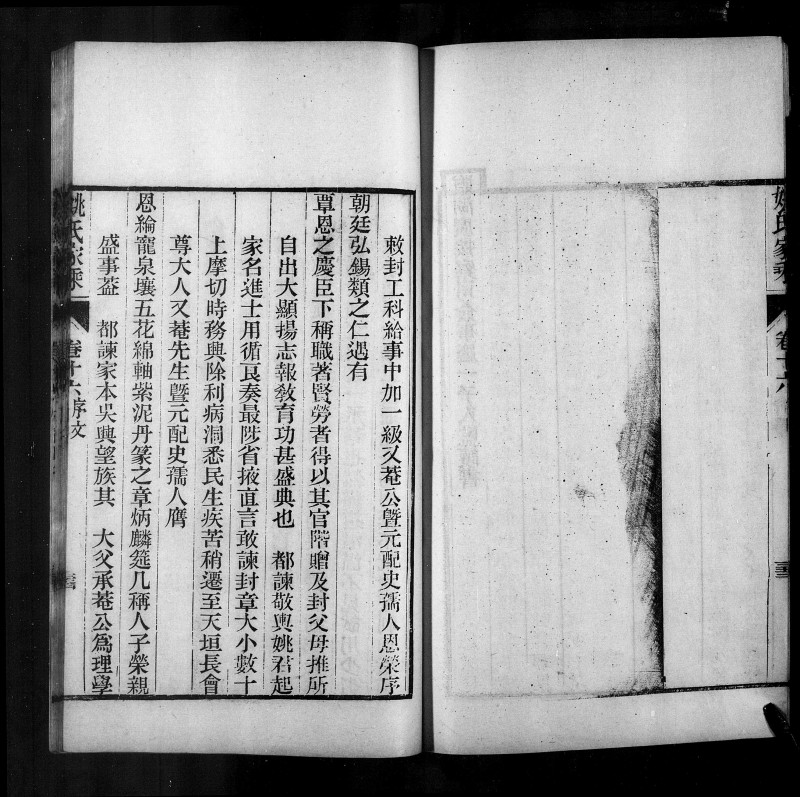 姚氏家乘
卷十六
敕封工科給事中加一級又菴公曁元配史孺人恩榮序
朝廷弘錫類之仁遇有
覃恩之慶臣下稱職著賢勞者得以其官階贈及封父母推所
自出大顯揚志報敎育功甚盛典也　都諫敬輿姚君起
家名進士用循良奏最陟省掖直言敢諫封章大小數十
上摩切時務興除利病洞悉民生疾苦稍遷至天垣長會
尊大人又菴先生曁元配史孺人膺
恩綸寵泉壤五花綿軸紫泥丹篆之章炳麟筵几稱人子榮親
盛事葢　都諫家本吳興望族其　大父承菴公爲理學
姚氏家乘
卷十六序文